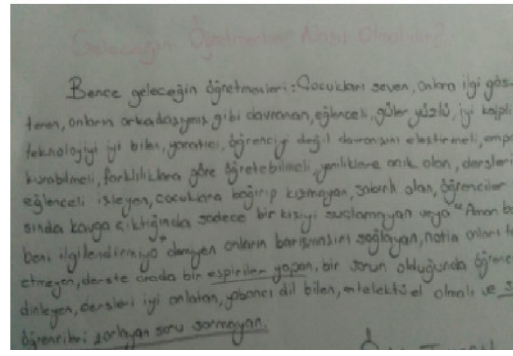 Geleceğin Öğretmenleri Nasıl Olmalıdır?
Bence geleceğin öğretmenleri: Çocukları seven, onlara ilgi gös-
teren, onların arkadaşıymış gibi davranan, eğlenceli, güler yüzlü, iyi kalpli
teknolojiyi iyi bilen, yaratıcı, öğrenciyi değil davranışını eleştirmeli, emp
kurabilmeli, farklılıklara göre öğretebilmeli, yeniliklere açık olan, dersleri
eğlenceli işleyen, çocuklara bağırıp kızmayan, sabırlı olan, öğrenciler
sında kavga çıktığında sadece bir kişiyi suçlamayan veya "Aman b
beni ilgilendirmiyo" demiyen onların barışmasını sağlayan, notla onları t
etmeyen, derste arada bir espiriler yapan, bir sorun olduğunda öğrenc
dinleyen, dersleri iyi anlatan, yabancı dil bilen, entelektüel olmalı ve s
öğrencileri zorlayan soru sormayan.